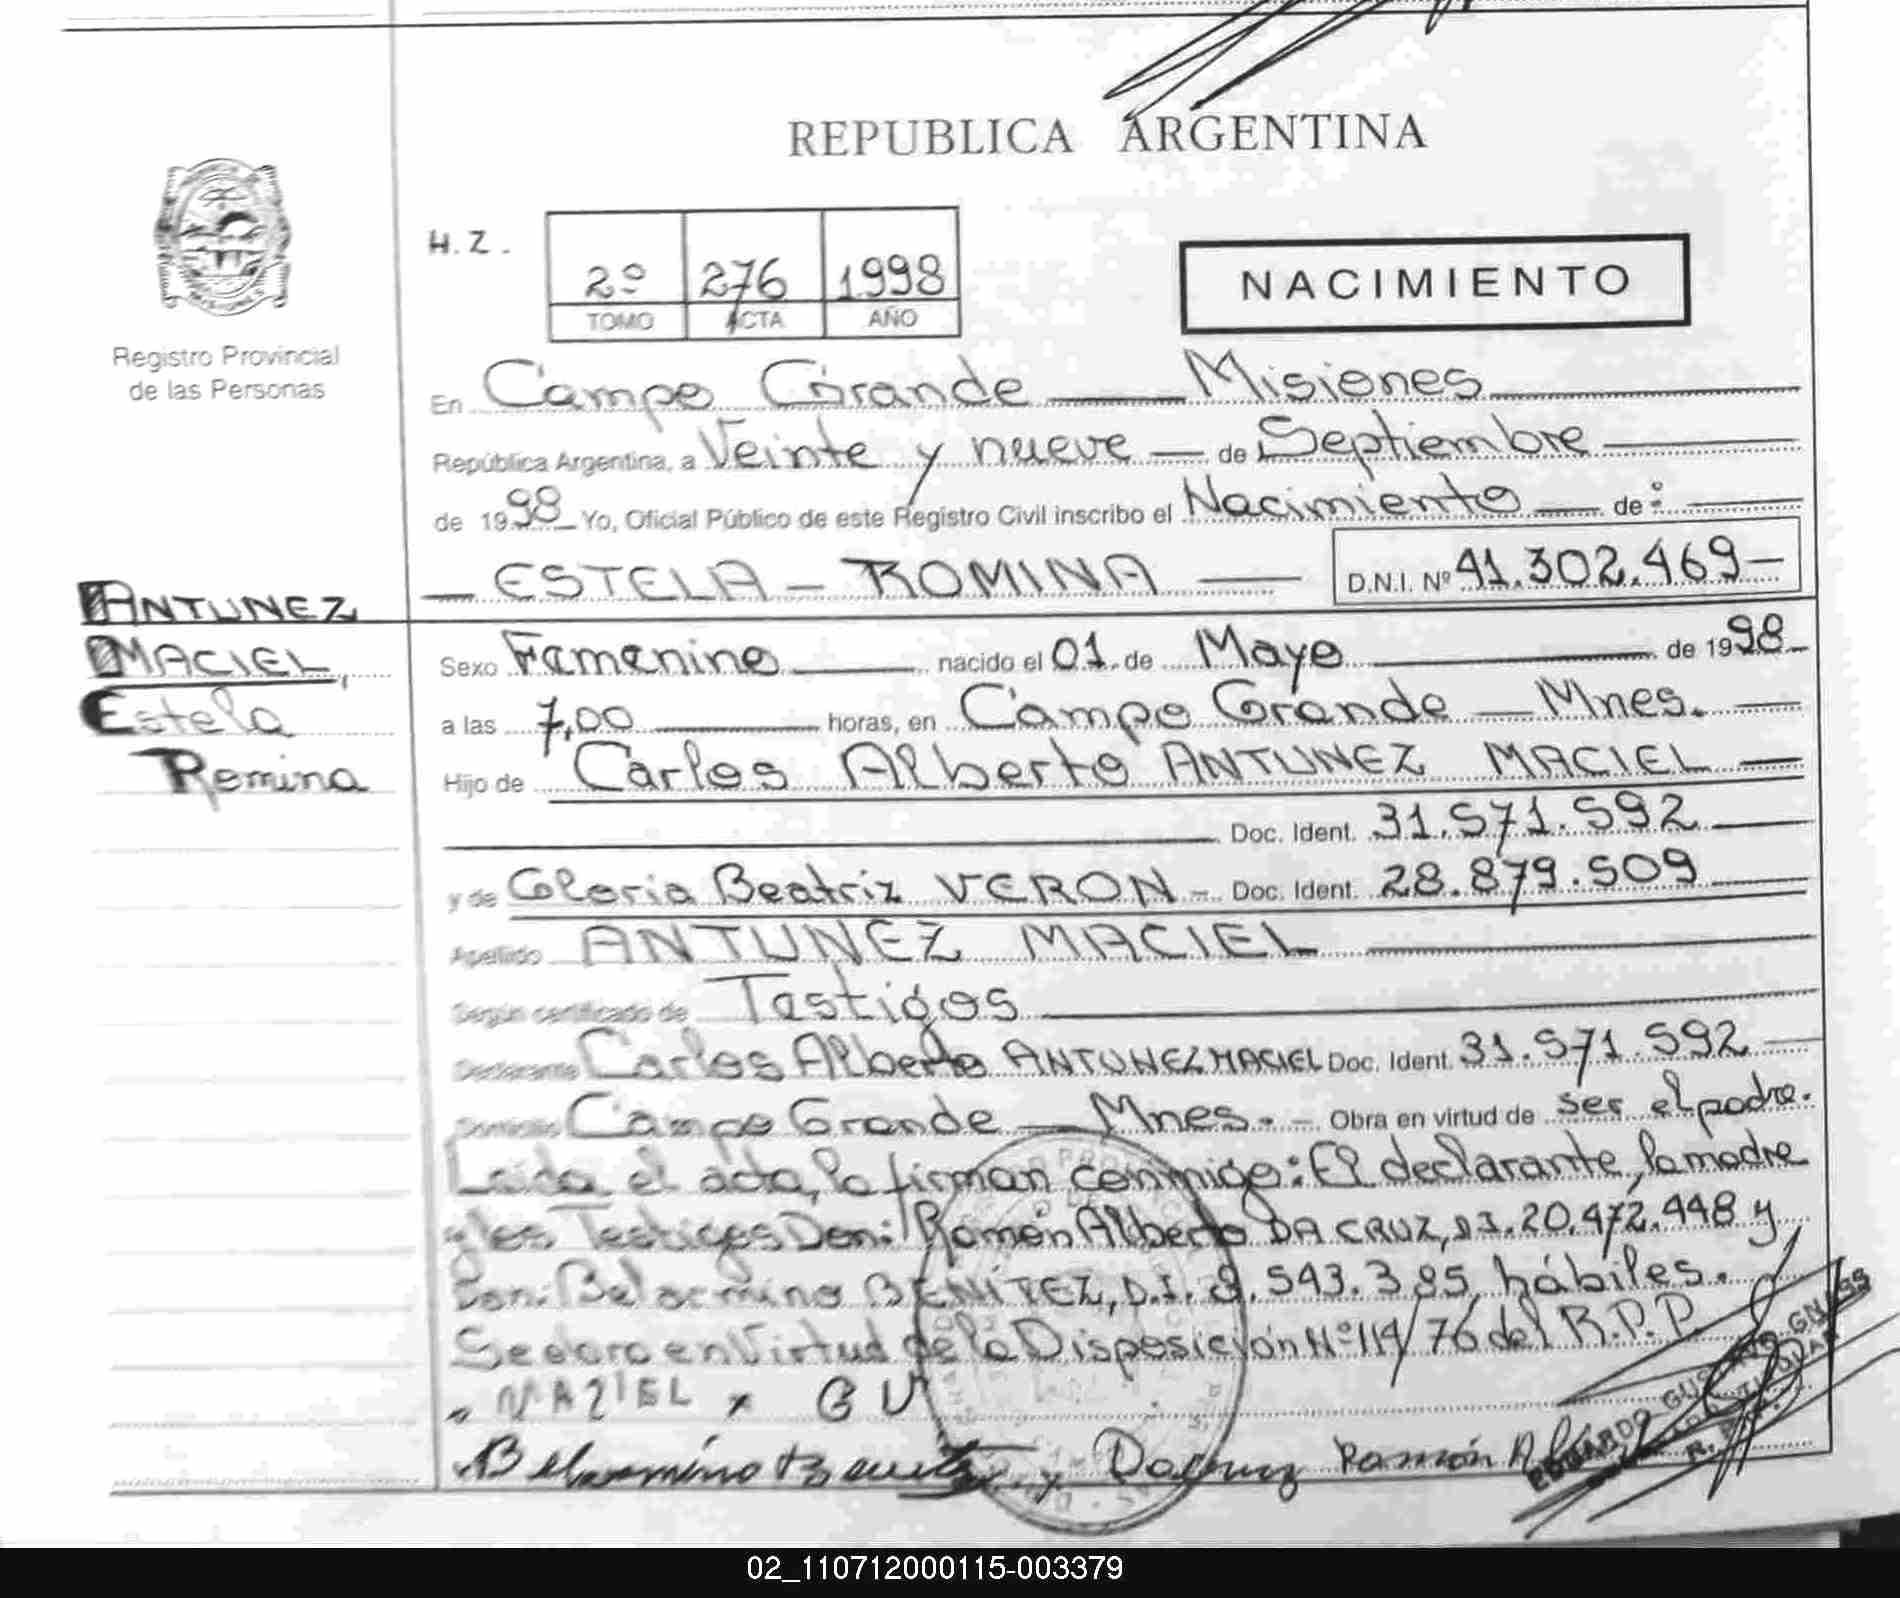 REPUBLICA ARGENTINA
H.Z.
2º 276 1998
TOMO ACTA AÑO
NACIMIENTO
Registro Provincial
de las Personas
En Campo Grande Misiones
República Argentina, a Veinte y nueve de Septiembre
de 1998 Yo, Oficial Público de este Registro Civil inscribo el Nacimiento de:
ESTELA - ROMINA D.N.I. Nº 41.302.469-
ANTUNEZ
MACIEL,
Estela
Romina
Sexo Femenino nacido el 01 de Mayo de 1998
a las 7,00 horas, en Campo Grande - Mnes.
Hijo de Carlos Alberto ANTUNEZ MACIEL
Doc. Ident. 31.571.592
y de Gloria Beatriz VERON - Doc. Ident. 28.879.509
Apellido ANTUNEZ MACIEL
Según certificado de Testigos
Declarante Carlos Alberto ANTUNEZ MACIEL Doc. Ident. 31.571.592
Domicilio Campo Grande - Mnes. - Obra en virtud de ser el padre.
Leída el acta, la firman conmigo: El declarante, la madre
y los Testigos Don: Ramón Alberto DA CRUZ, D.I. 20.472.448 y
Don: Belarmino BENÍTEZ, D.I. 8.543.385, hábiles.
Se labra en Virtud de la Disposición Nº 114/76 del R.P.P.
MAZIEL x G V
Belarmino Benitez Dacruz Ramón
02_110712000115-003379